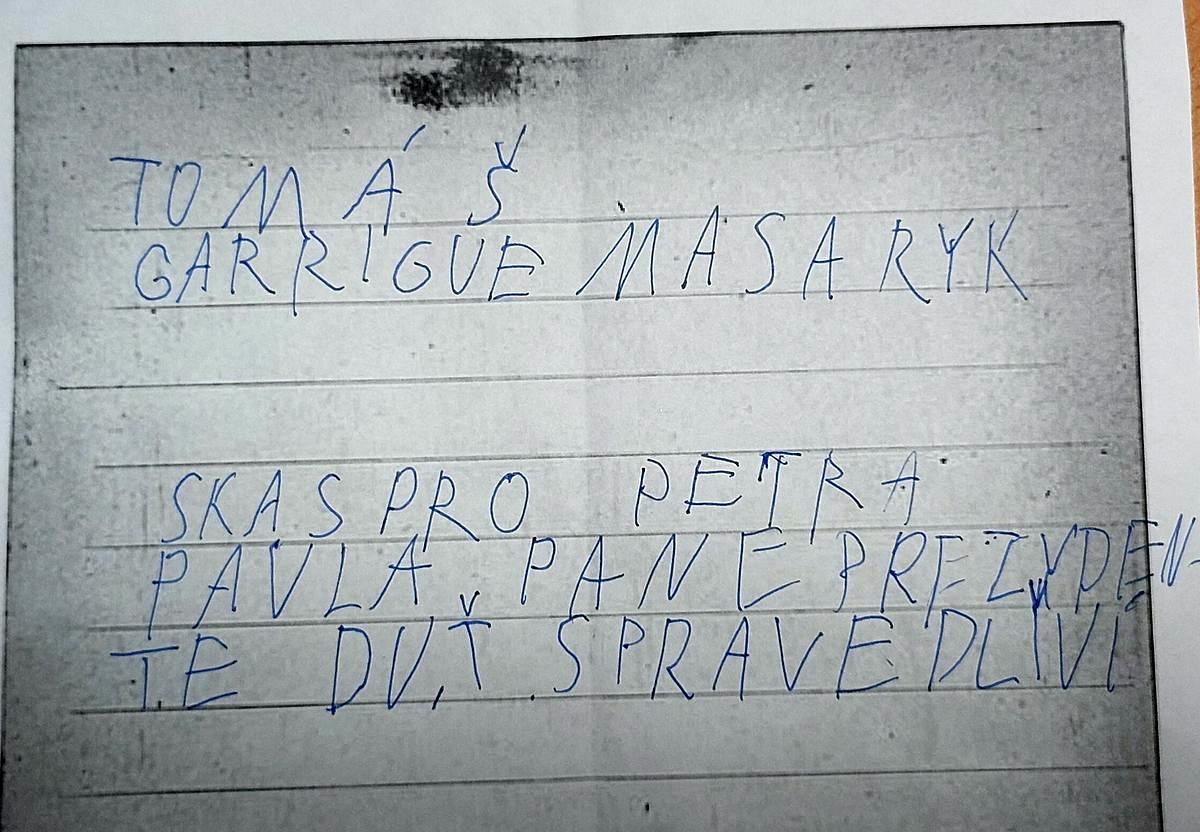 TOMÁŠ
GARRIGUE MASARYK
SKAS PRO PETRA
PAVLA PANE PREZYDEN-
TE DUŤ SPRAVEDLIVÍ